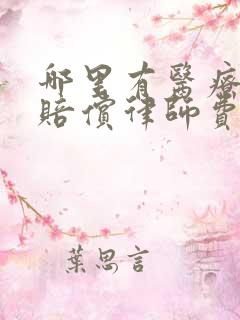 那里有醫療
賠償律師費
葉思言